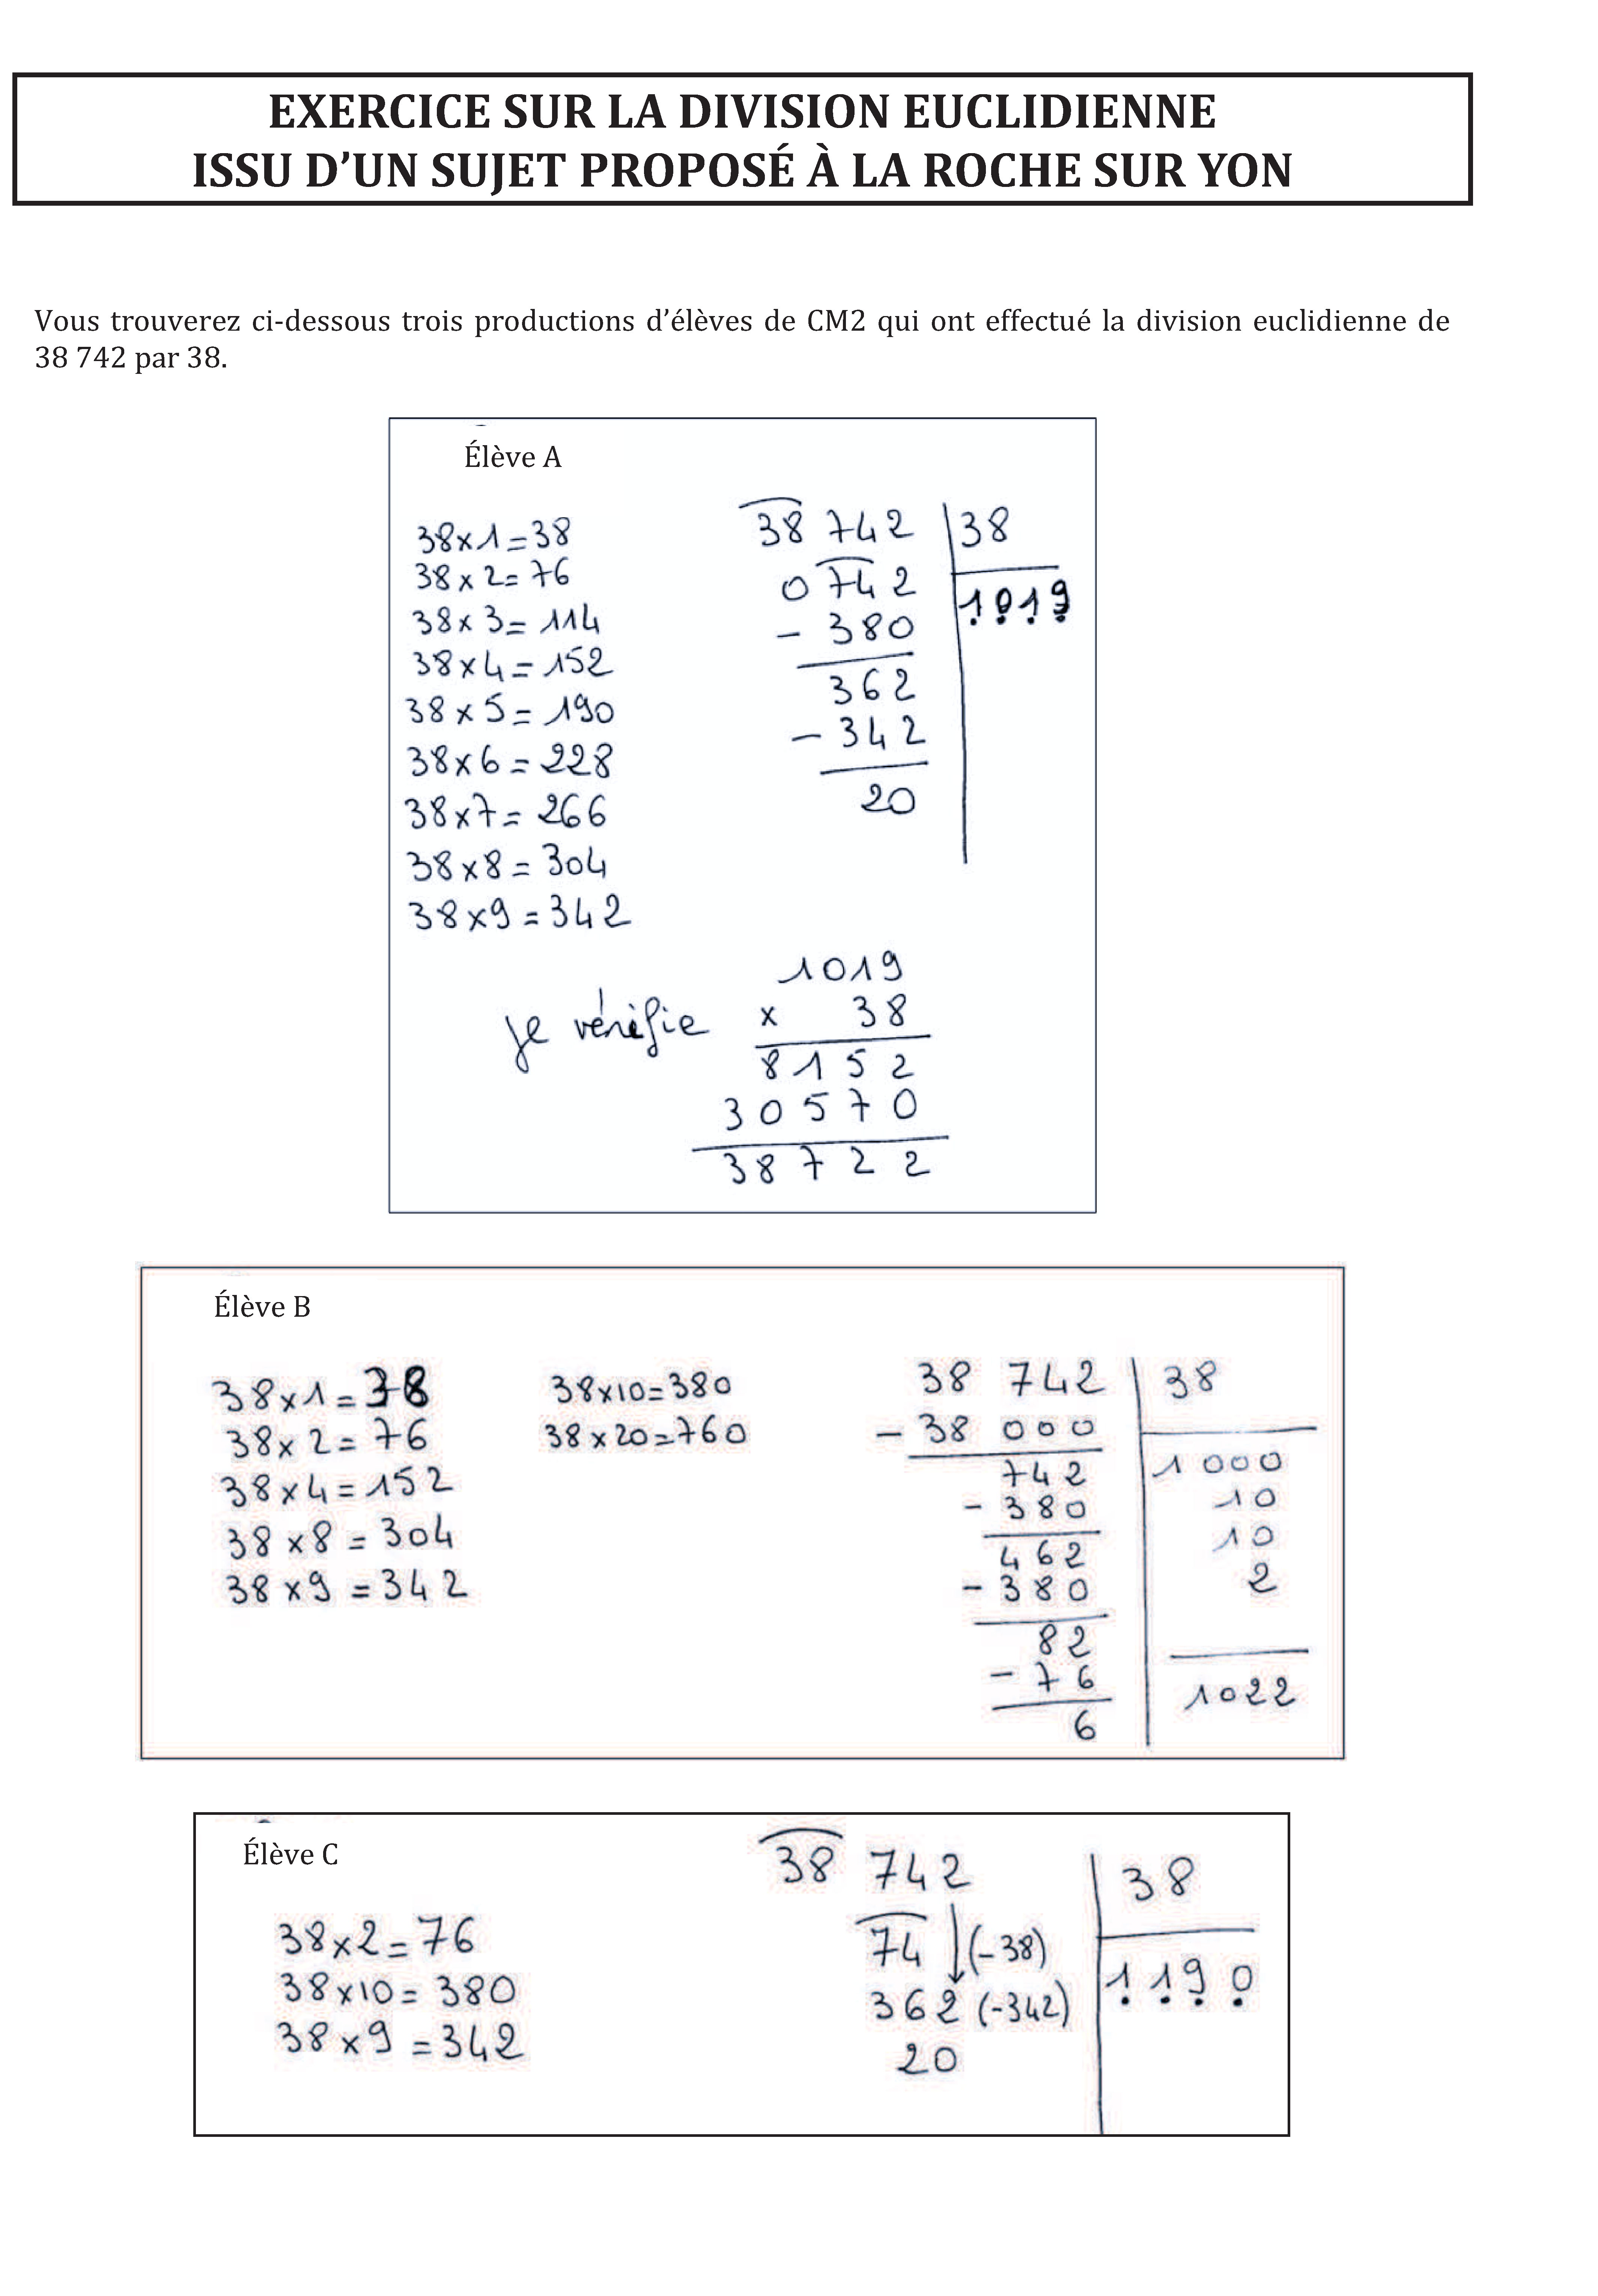 EXERCICE SUR LA DIVISION EUCLIDIENNE
ISSU D’UN SUJET PROPOSÉ À LA ROCHE SUR YON
Vous trouverez ci-dessous trois productions d’élèves de CM2 qui ont effectué la division euclidienne de
38 742 par 38.
Élève A
38 x 1 = 38
38 x 2 = 76
38 x 3 = 114
38 x 4 = 152
38 x 5 = 190
38 x 6 = 228
38 x 7 = 266
38 x 8 = 304
38 x 9 = 342
38 742 38
0 742 1019
- 380
362
- 342
20
je vérifie
1019
x 38
8152
30570
38722
Élève B
38 x 1 = 38
38 x 2 = 76
38 x 4 = 152
38 x 8 = 304
38 x 9 = 342
38 x 10 = 380
38 x 20 = 760
38 742 38
- 38 000
742 1 000
- 380 10
462 10
- 380 2
82
- 76 1022
6
Élève C
38 x 2 = 76
38 x 10 = 380
38 x 9 = 342
38 742 38
74 (-38)
362 (-342) 1190
20